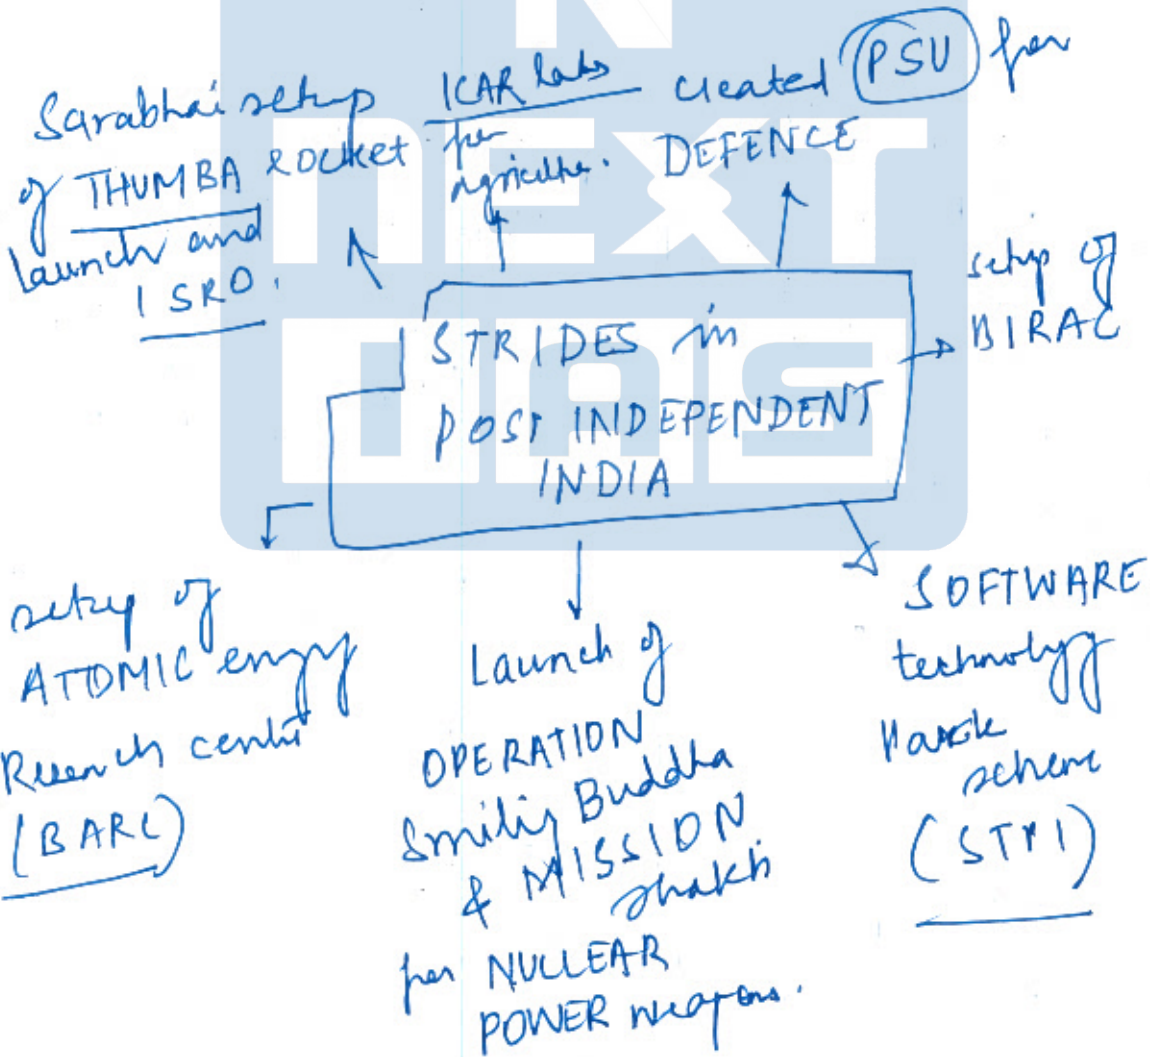 Sarabhai setup
of THUMBA rocket
launch and
ISRO.
ICAR labs
for
agriculture.
created PSU for
DEFENCE
setup of
BIRAC
STRIDES in
POST INDEPENDENT
INDIA
setup of
ATOMIC energy
Research centre
(BARC)
Launch of
OPERATION
Smiling Buddha
& MISSION
shakti
for NUCLEAR
POWER weapons.
SOFTWARE
technology
Park
scheme
(STPI)
NEXT
IAS